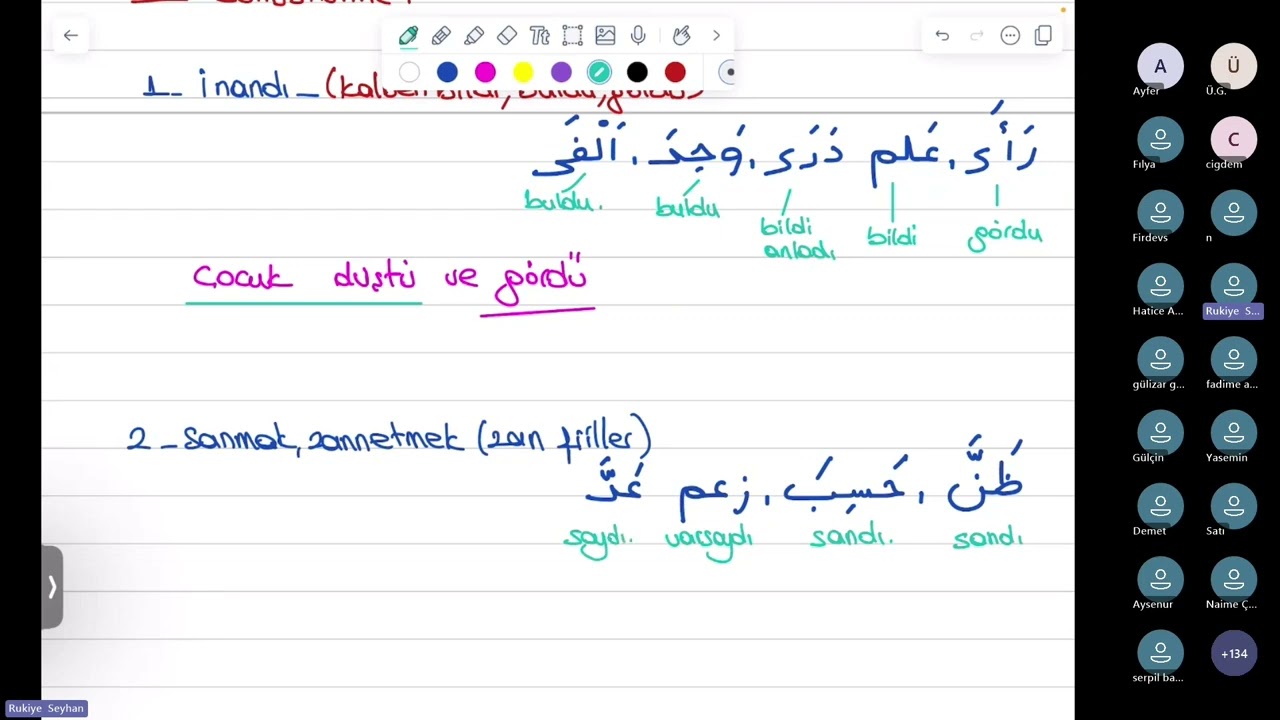 1- inandı - (kalben bildi, buldu, gördü)
رَأَى، عَلم دَرَى، وَجِدَ، اَلْفَى
buldu. buldu bildi anladı bildi gördu
Çocuk düştü ve gördü
2-sanmak, zannetmek (zan fiiller)
ظَنَّ، حَسِبَ، زعم عَدَّ
saydı. varsaydı sandı. sandı
A Ü
Ayfer Ü.G.
C
Fılya cigdem
Firdevs n
Hatice A... Rukiye S...
gülizar g... fadime a...
Gülçin Yasemin
Demet Satı
Aysenur Naime Ç...
serpil ba... +134
Rukiye Seyhan
Tt